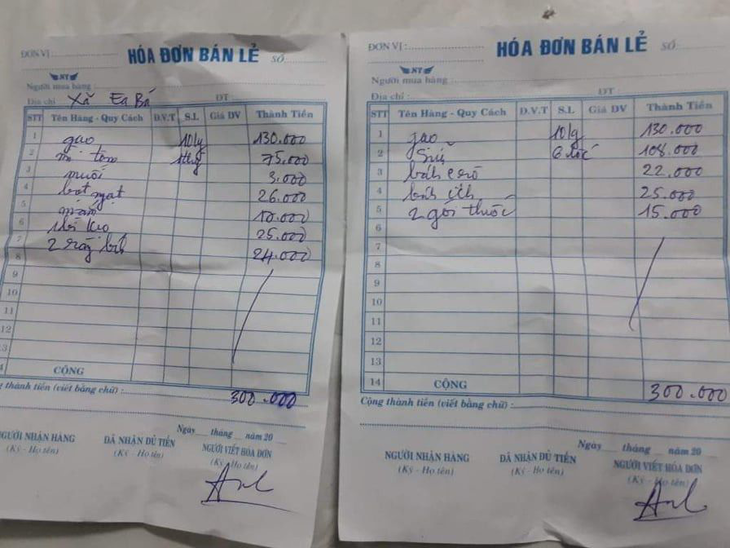 ĐƠN VỊ :
HÓA ĐƠN BÁN LẺ SỐ
NT
Người mua hàng :
Địa chỉ Xã Ea Bá ĐT
STT Tên Hàng - Quy Cách Đ.V.T S.L Giá ĐV Thành Tiền
1 gạo 10kg 130.000
2 mì tôm 75.000
3 muối 3.000
4 bột ngọt 26.000
5 mắm 10.000
6 25.000
7 2 24.000
8
9
10
11
12
13
CỘNG
ng thành tiền (viết bằng chữ) : 300.000
Ngày tháng năm 20
NGƯỜI NHẬN HÀNG ĐÃ NHẬN ĐỦ TIỀN NGƯỜI VIẾT HÓA ĐƠN
(Ký - Họ tên) (Ký - Họ tên) (Ký - Họ tên)
ĐƠN VỊ :
HÓA ĐƠN BÁN LẺ SỐ
NT
Người mua hàng :
Địa chỉ : ĐT
STT Tên Hàng - Quy Cách Đ.V.T S.L Giá ĐV Thành Tiền
1 gạo 10kg 130.000
2 Sữa 6 lốc 108.000
3 bánh 22.000
4 bánh ích 25.000
5 2 gói thuốc 15.000
6
7
8
9
10
11
12
13
14 CỘNG 300.000
Cộng thành tiền (viết bằng chữ) :
Ngày tháng năm 20
NGƯỜI NHẬN HÀNG ĐÃ NHẬN ĐỦ TIỀN NGƯỜI VIẾT HÓA ĐƠN
(Ký - Họ tên) (Ký - Họ tên) (Ký - Họ tên)